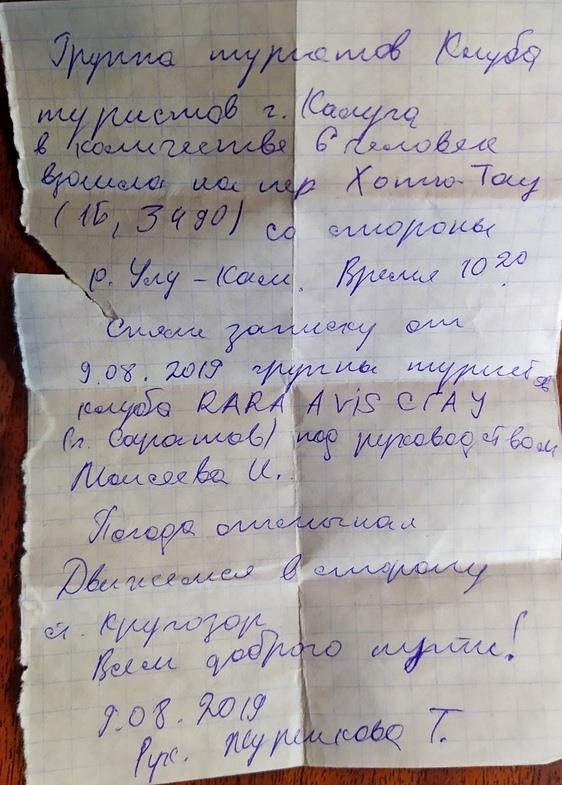 Группа туристов Клуба
туристов г. Калуга
в количестве 6 человек
взошла на пер Хотю-Тау
(1Б, 3490) со стороны
р. Улу-Кам. Время 10 20
Сняли записку от
9.08.2019 группы туристов
клуба RARA AVIS СГАУ
(г. Саратов) под руководством
Моисеева И.
Погода отличная
Движемся в сторону
ст. Кругозор
Всем доброго пути!
9.08.2019
Рук. Журикова Т.